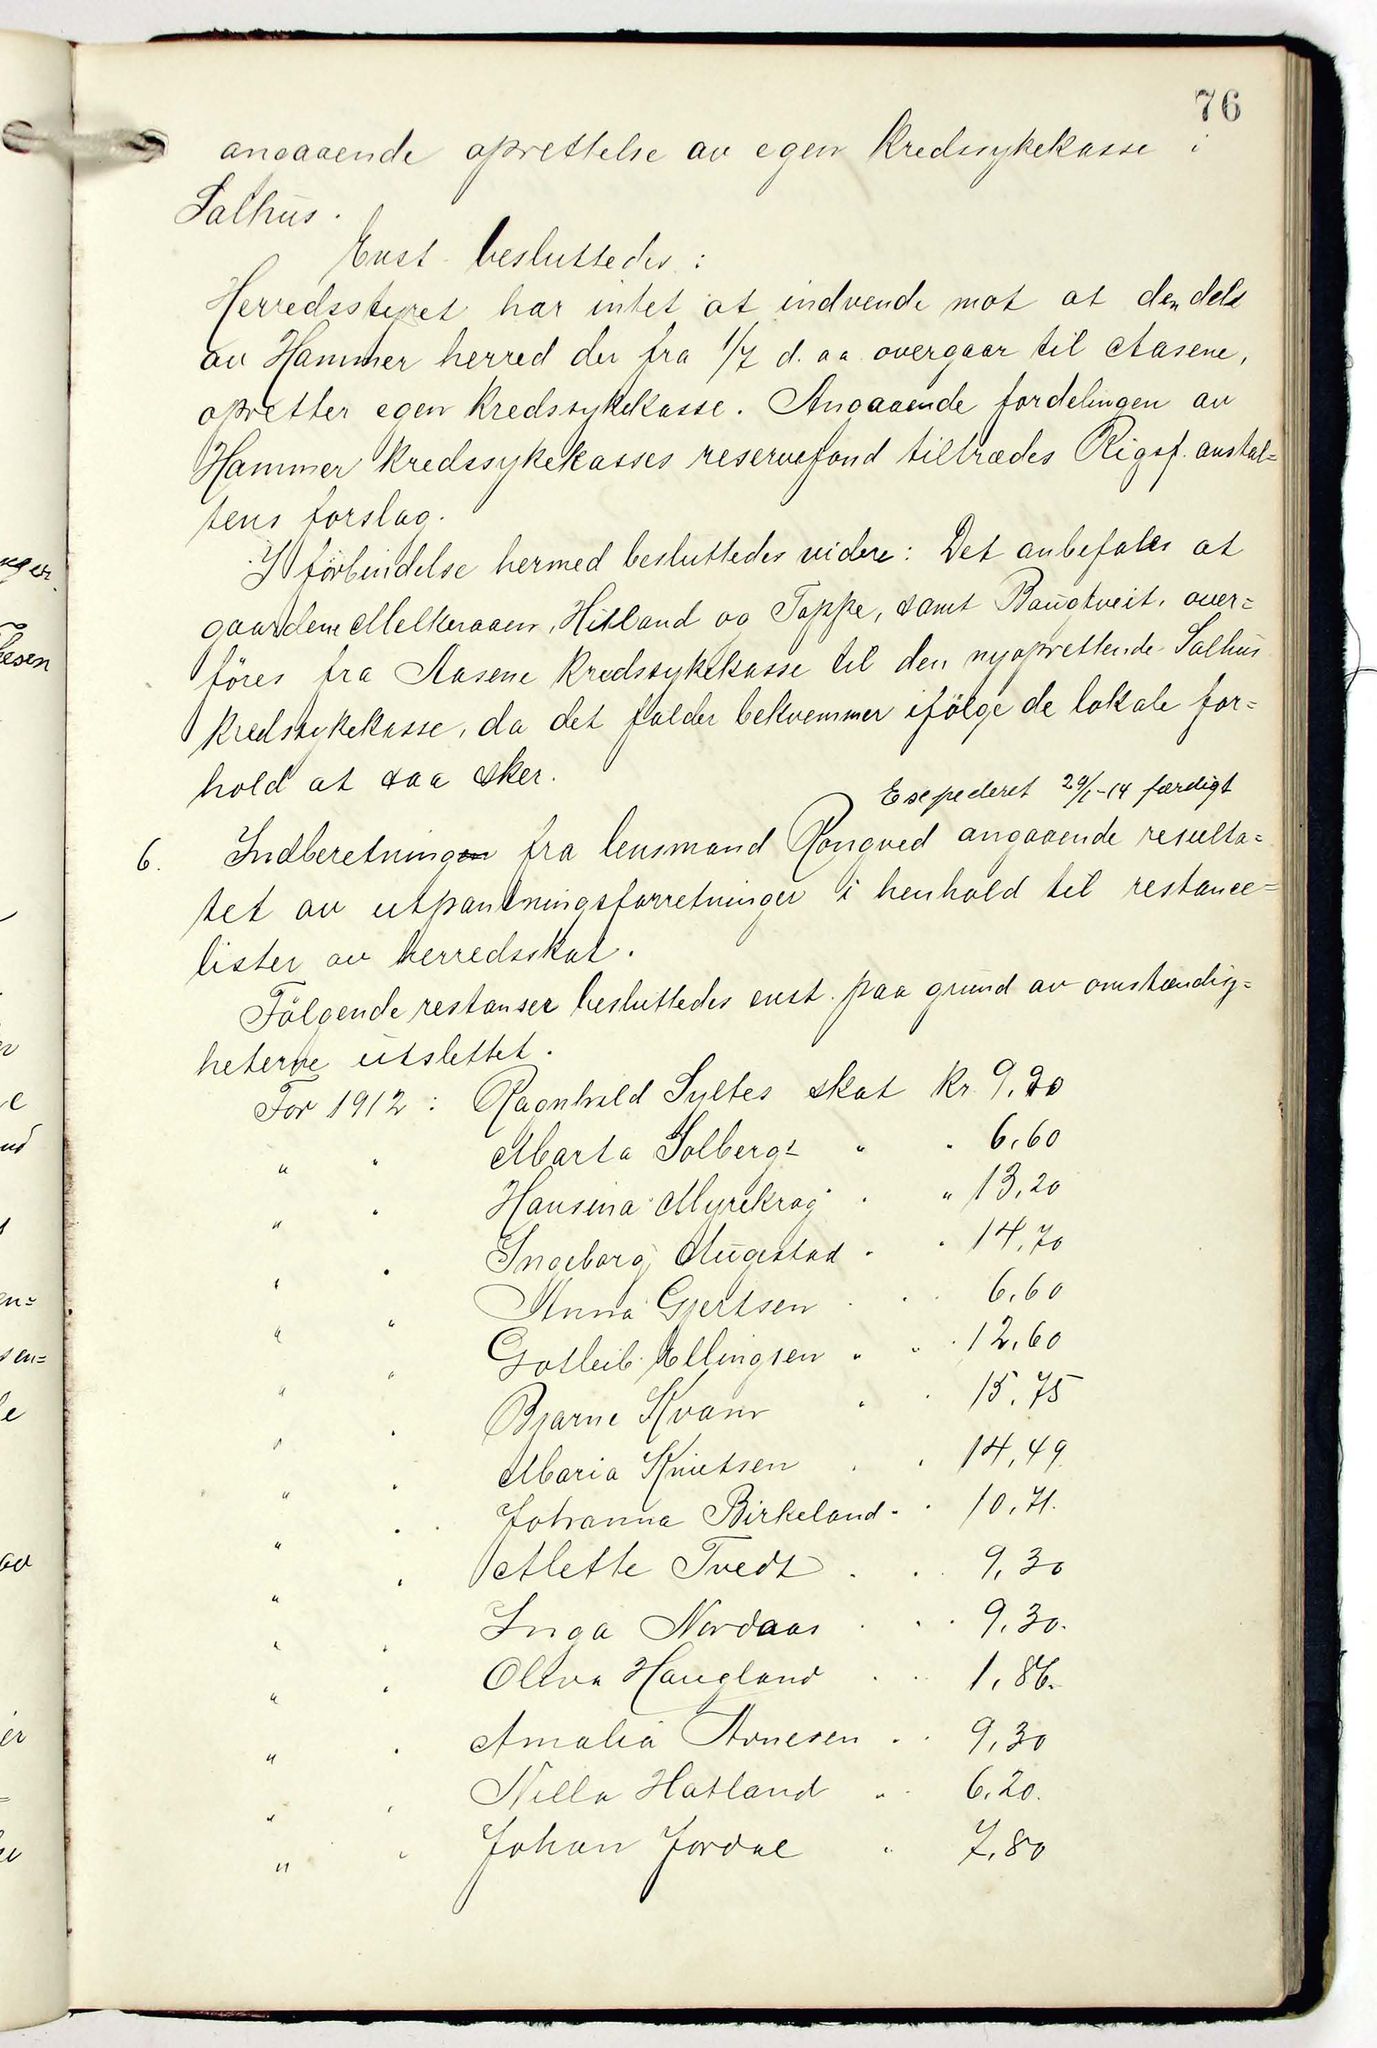 76
angaaende oprettelse av egen kredssykekasse i
Salhus.
Enst. besluttedes:
Herredsstyret har intet at indvende mot at den del
av Hammer herred der fra 1/7 d. aa. overgaar til Aasene,
opretter egen kredssykekasse. Angaaende fordelingen av
Hammer kredssykekasses reservefond tiltrædes Rigsf. anstal=
tens forslag.
I forbindelse hermed besluttedes videre: Det anbefales at
gaardene Melkeraaen, Hitland og Toppe, samt Baugtveit, over=
föres fra Aasene kredssykekasse til den nyoprettende Salhus
kredssykekasse, da det falder bekvemmer ifölge de lokale for=
hold at saa sker.
Expederet 29/1-14 færdigt
6. Indberetning fra lensmand Rongved angaaende resulta=
tet av utpantningsforretninger i henhold til restance=
lister av herredsskat.
Fölgende restanser besluttedes enst. paa grund av omstændig=
heterne utslettet.
For 1912: Ragnhild Syltes skat kr. 9,20
" " Marta Solberg " " 6,60
" " Hansina Myrekrog " " 13,20
" " Ingeborg Augestad " " 14,70
" " Anna Gjertsen " " 6,60
" " Gotleib Ellingsen " " 12,60
" " Bjarne Kvam " " 15,75
" " Maria Knutsen " " 14,49
" " Johanna Birkeland " " 10,71.
" " Mette Tvedt " " 9,30
" " Inga Nordaas " " 9,30.
" " Oliva Haugland " " 1,86.
" " Amalia Arnesen " " 9,30
" " Nilla Hatland " " 6,20.
" " Johan Jordal " 7,80